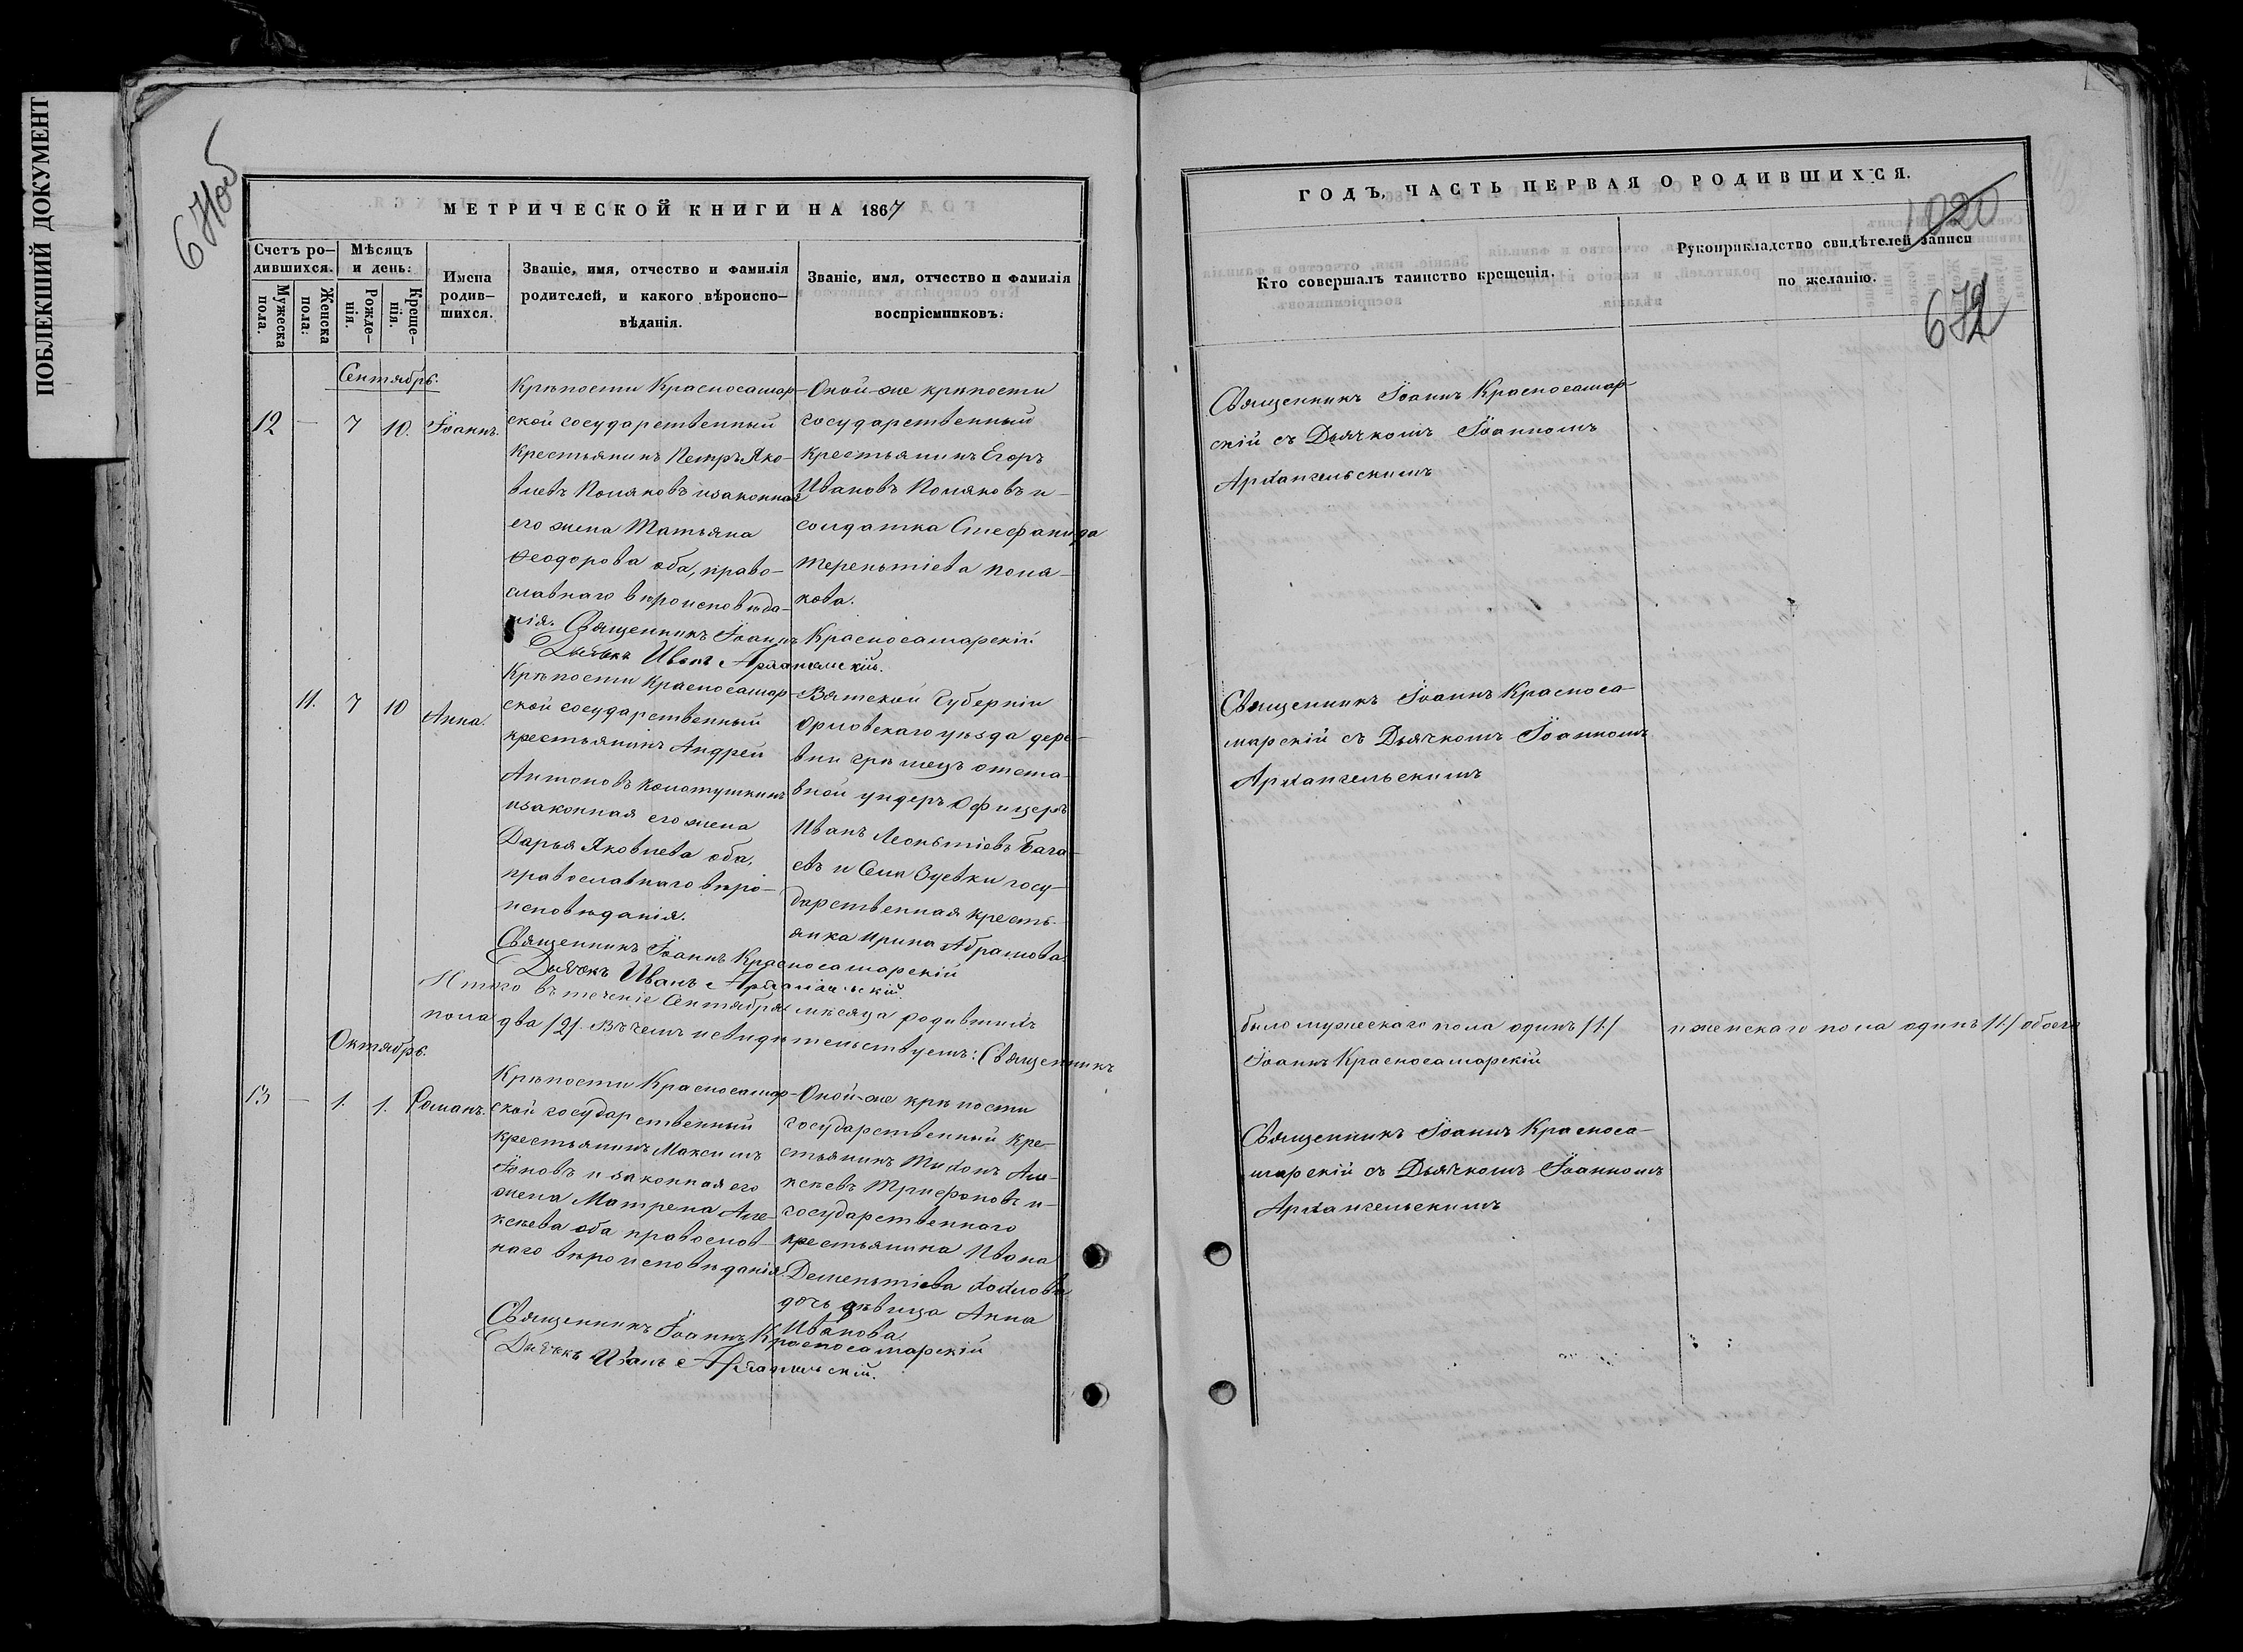 ПОБЛЕКШИЙ ДОКУМЕНТ
671об
МЕТРИЧЕСКОЙ КНИГИ НА 1867
Счетъ ро-
дившихся.
Мужеска
пола.
Женска
пола.
Мѣсяцъ
и день:
Рожде-
нія.
Креще-
нія.
Имена
родив-
шихся.
Званіе, имя, отчество и фамилія
родителей, и какого вѣроиспо-
вѣданія.
Званіе, имя, отчество и фамилія
воспріемниковъ.
Сентябрь.
12 — 7 10. Іоаннъ.
Крѣпости Красносамар-
ской государственный
крестьянинъ Петръ Яко-
влевъ Поляковъ изаконная
его жена Татьяна
Ѳеодорова оба, право-
славнаго вѣроисповѣда-
нія. Священникъ Іоаннъ Красносамарскій
Дьячекъ Иванъ Архангельскій.
Оной-же крѣпости
государственный
крестьянинъ Егоръ
Ивановъ Поляковъ и-
солдатка Стефанида
Терентіева Поля-
кова.
11. 7 10 Анна.
Крѣпости Красносамар-
ской государственный
крестьянинъ Андрей
Антоновъ Колотушкинъ
изаконная его жена
Дарья Яковлева оба,
православнаго вѣро-
исповѣданія.
Священникъ Іоаннъ Красносамарскій
Дьячекъ Иванъ Архангельскій.
Вятской Губерніи
Орловскаго уѣзда дере-
вни отста-
вной ундеръ Офицеръ
Иванъ Леонтіевъ Бага-
евъ и Села Зуевки госу-
дарственная кресть-
янка Ирина Абрамова.
Итого въ теченіе Сентября мѣсяца родившихъ
пола два /2/. Въ чемъ исвидѣтельствуемъ: Священникъ
Октябрь.
13 — 1. 1. Романъ.
Крѣпости Красносамар-
ской государственный
крестьянинъ Максимъ
Іоновъ и законная его
жена Матрена Але-
ксѣева оба православ-
наго вѣроисповѣданія.
Священникъ Іоаннъ Красносамарскій
Дьячекъ Иванъ Архангельскій.
Оной-же крѣпости
государственный кре-
стьянинъ Тихонъ Але-
ксѣевъ Трифоновъ и-
государственнаго
крестьянина Ивана
Дементіева Хохлова
дочь дѣвица Анна
Иванова.
ГОДЪ, ЧАСТЬ ПЕРВАЯ О РОДИВШИХСЯ.
1020
Кто совершалъ таинство крещенія.
Рукоприкладство свидѣтелей записи
по желанію.
672
Священникъ Іоаннъ Красносамар-
скій съ Дьячкомъ Іоанномъ
Архангельскимъ
Священникъ Іоаннъ Красноса-
марскій съ Дьячкомъ Іоанномъ
Архангельскимъ
было мужескаго пола одинъ /1/ и женскаго пола одинъ /1/ обоего
Іоаннъ Красносамарскій
Священникъ Іоаннъ Красноса-
марскій съ Дьячкомъ Іоанномъ
Архангельскимъ